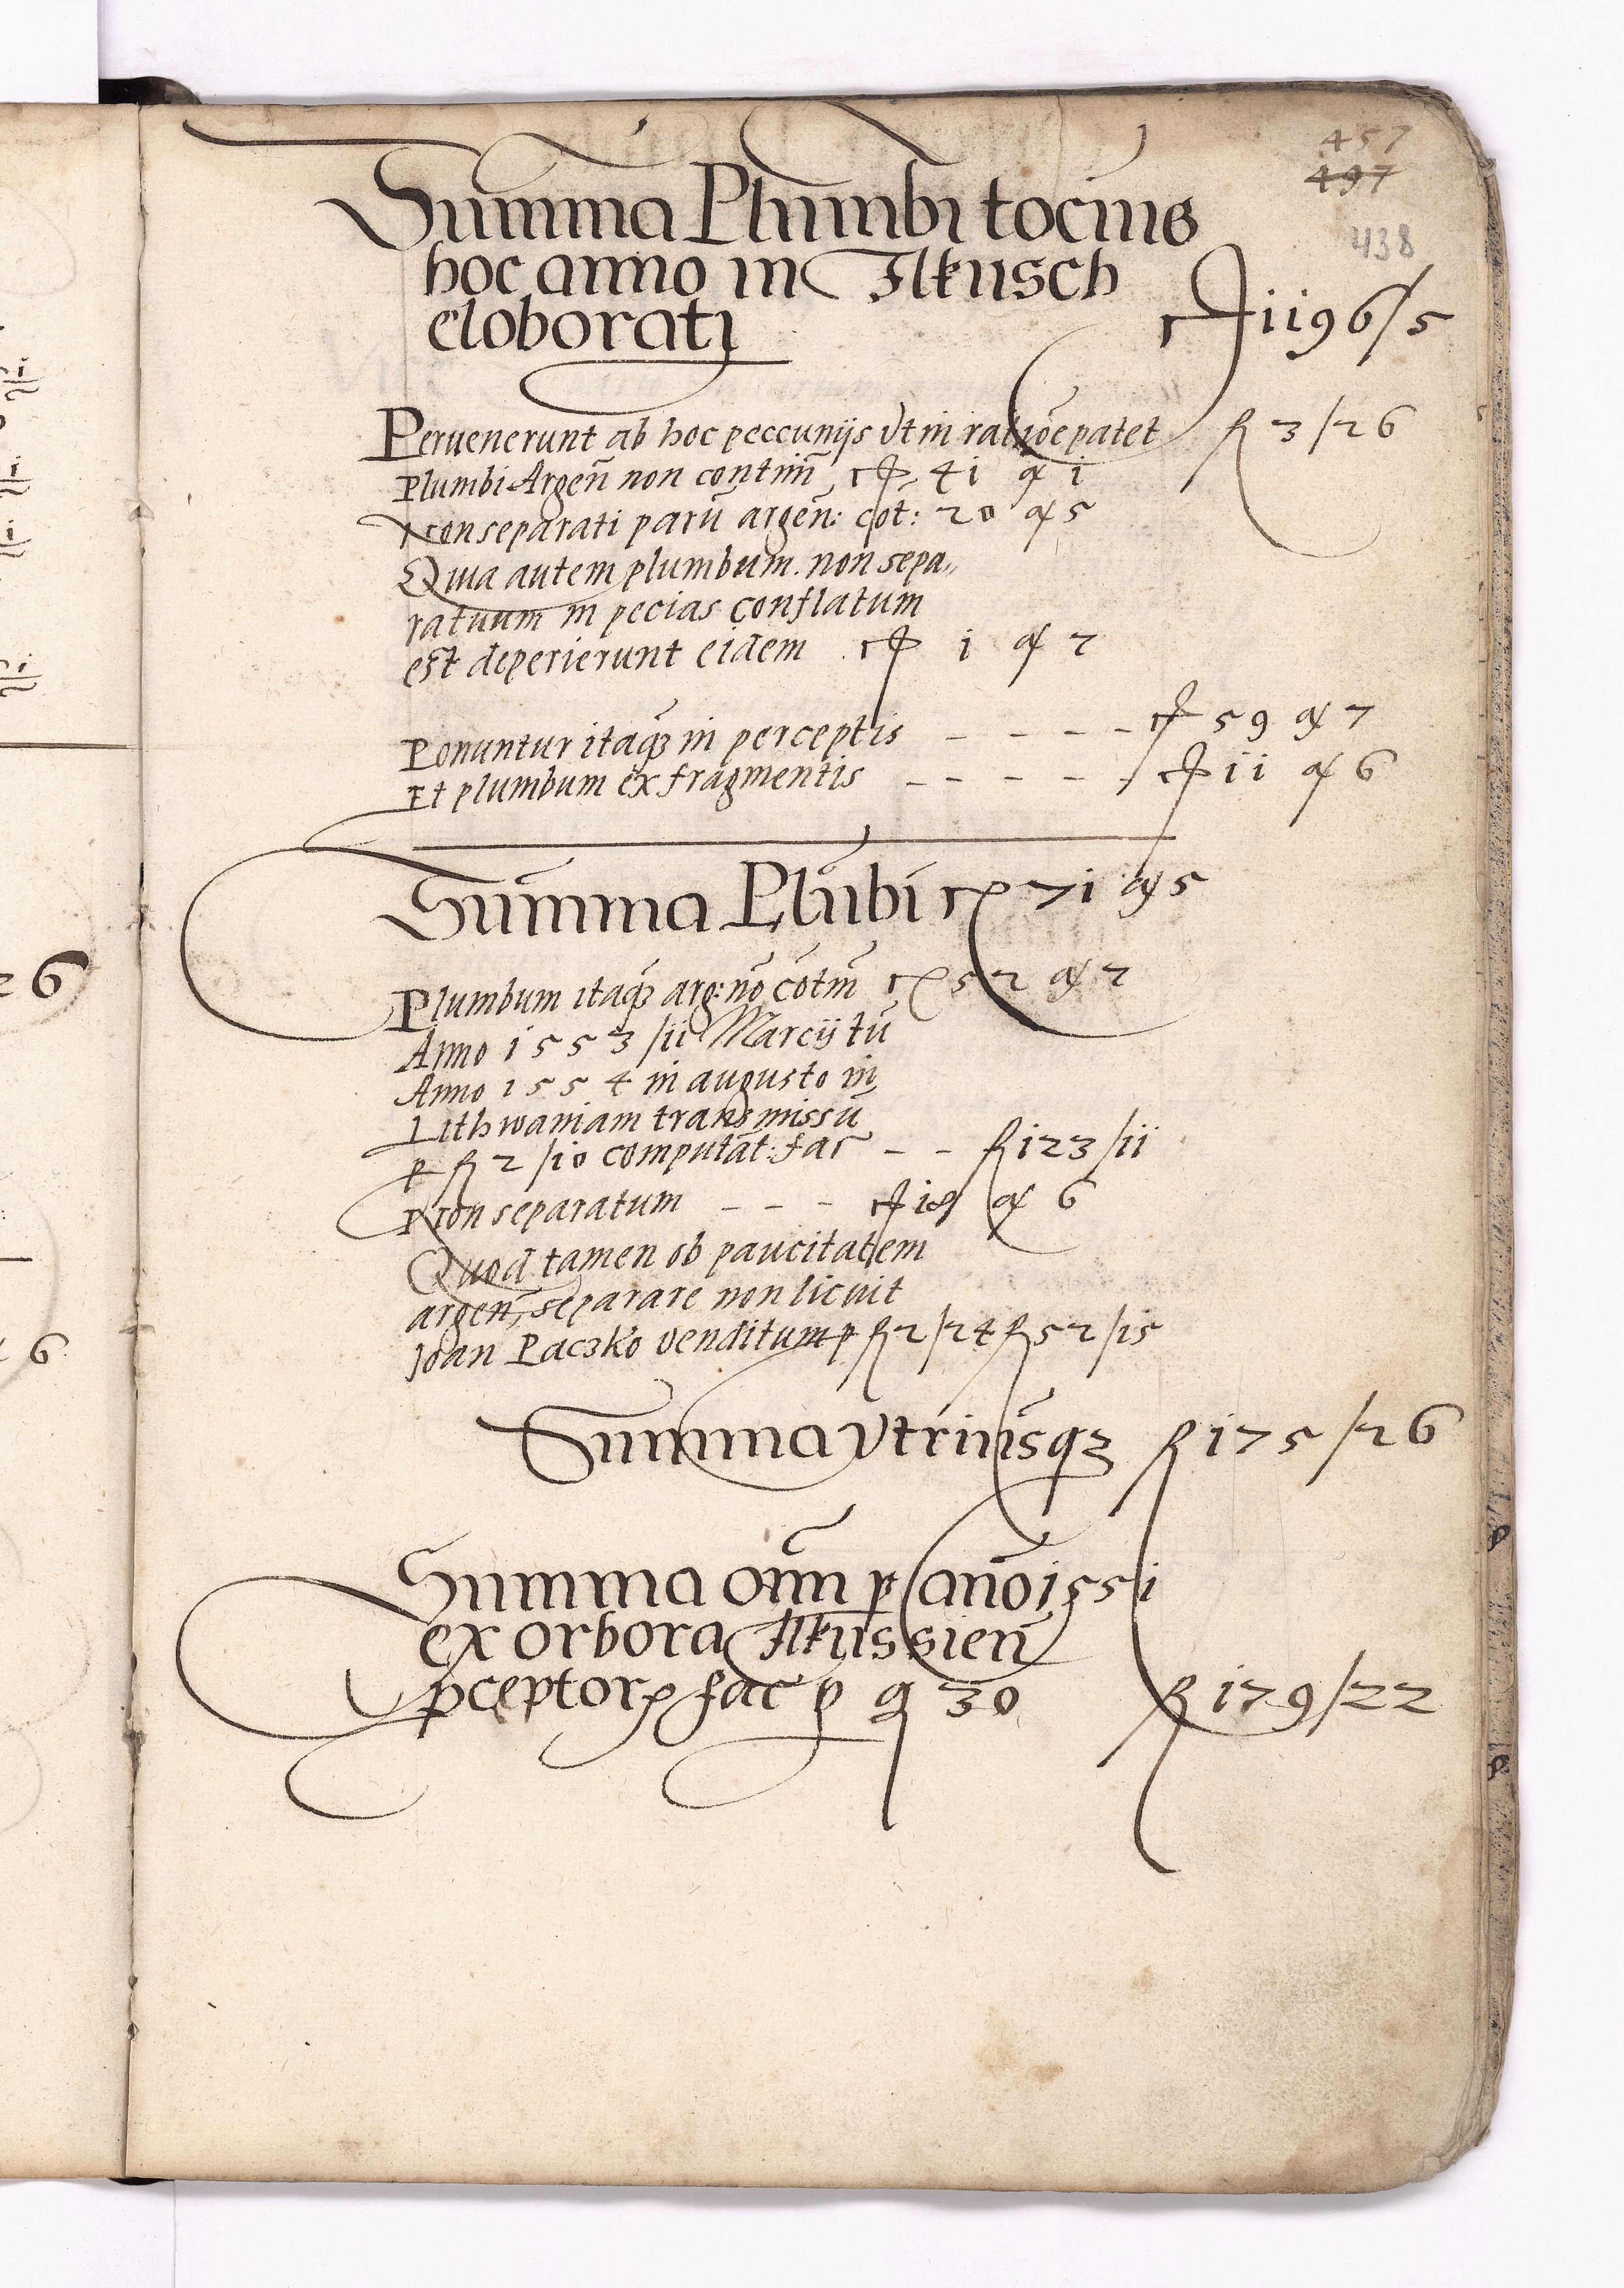 457
497
438
Summa Plumbi tocius
hoc anno in Ilkusch
eloborati ii96/5
Peruenerunt ab hoc peccunijs vt in ratiōe patet R 3/26
Plumbi Argen̄ non contin̄ 4i i
Non separati parū argen̄: cōt: 20 5
Quia autem plumbum non sepa„
ratuum in pecias conflatum
est deperierunt eidem i 2
Ponuntur itaqȝ in perceptis - - - - 59 7
Et plumbum ex fragmentis - - - - - ii 6
Summa Plūbi 7i 5
Plumbum itaqȝ arg: nō cōtin̄ 52 2
Anno i553 /ii Marcij tū
Anno i554 in augusto in
Lithwaniam transmissū
ꝑ R 2/i0 computāt: fac̄ - - R i23/ii
Non separatum - - - i8/ 6
Quod tamen ob paucitatem
argen̄, separare non licuit
Joan Paczko venditum ꝑ R 2/24 R 52/i5
Summa vtriusqȝ R i75/26
Summa oīm ꝑ anō i55i
ex orbora Ilkussien̄
ꝑceptorꝝ fac̄ ꝑ g 30 R i79/22
26
6